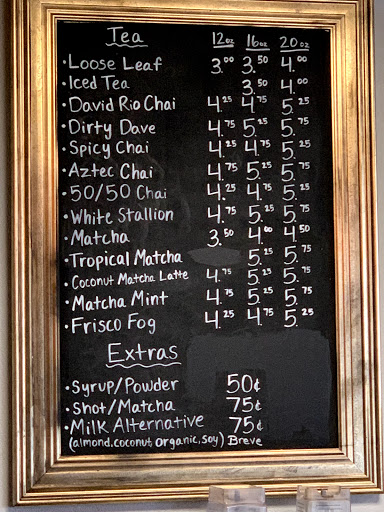 Tea 12oz 16oz 20oz
•Loose Leaf 3.00 3.50 4.00
•Iced Tea 3.50 4.00
•David Rio Chai 4.25 4.75 5.25
•Dirty Dave 4.75 5.25 5.75
•Spicy Chai 4.25 4.75 5.25
•Aztec Chai 4.75 5.25 5.75
•50/50 Chai 4.25 4.75 5.25
•White Stallion 4.75 5.25 5.75
•Matcha 3.50 4.00 4.50
•Tropical Matcha 5.25 5.75
•Coconut Matcha Latte 4.75 5.25 5.75
•Matcha Mint 4.75 5.25 5.75
•Frisco Fog 4.25 4.75 5.25
Extras
•Syrup/Powder 50¢
•Shot/Matcha 75¢
•Milk Alternative 75¢
(almond, coconut, organic, soy) Breve